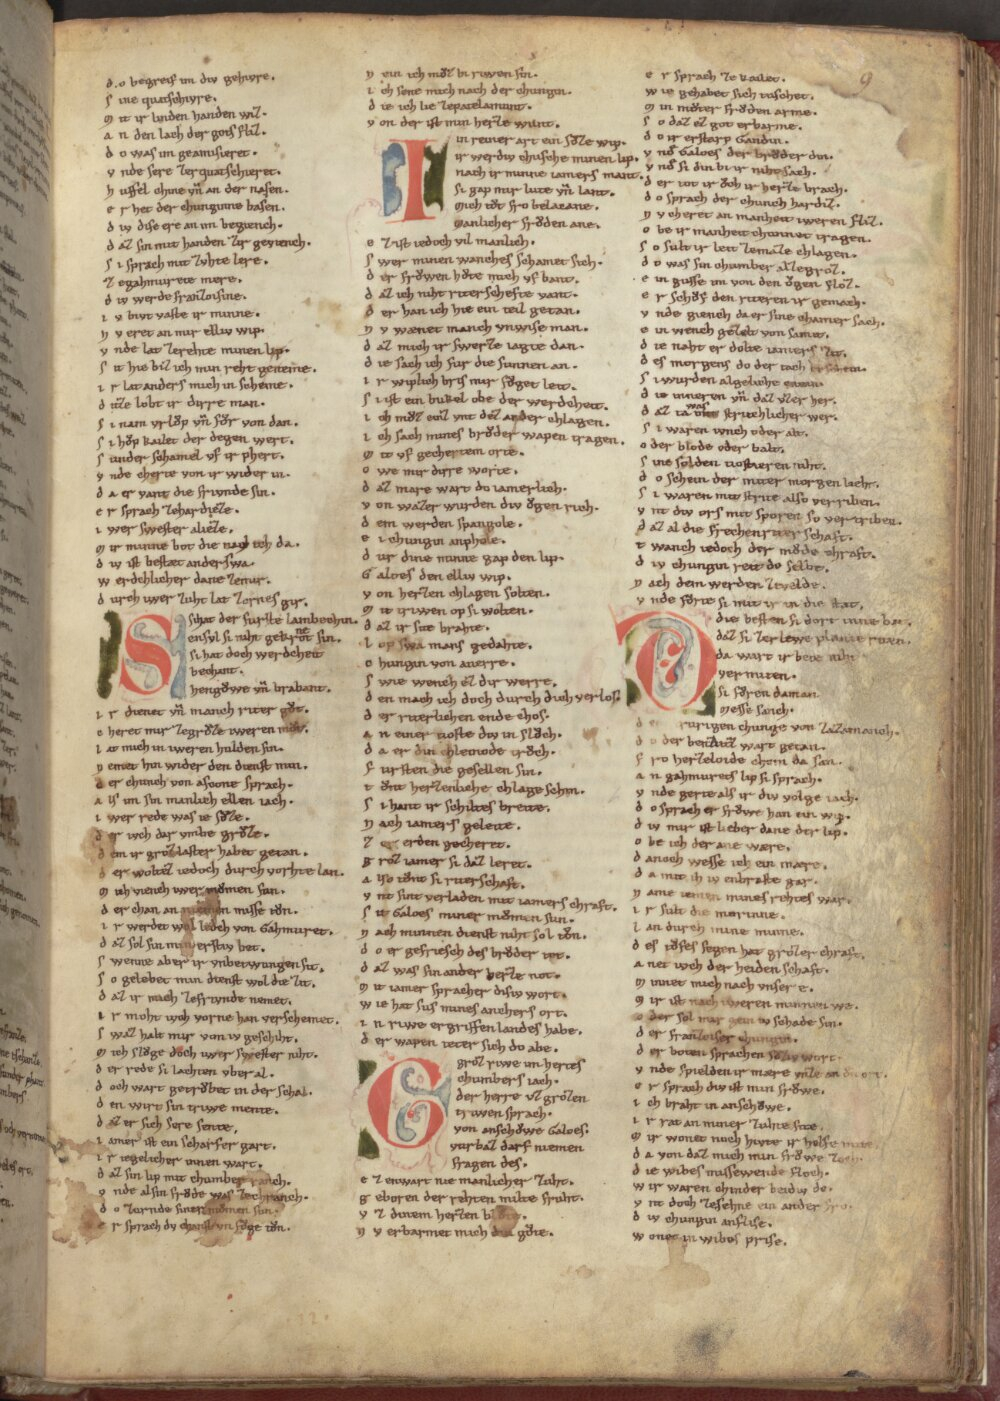 9
d o begreif im div gehivre.
s ine quatschivre.
m it ir linden handen wiz.
a n den lach der gots fliz.
d o was im geamisieret.
v nde sere zerquatschieret.
h uffel chinne vñ an der nasen.
e r het der chunginne basen.
d iv dise ere an im begiench.
d az si in mit handen zir geviench.
s i sprach mit zvhte lere.
z egahmurete mere.
d iv werde franzoisine.
i v bivt vaste ir minne.
n v eret an mir elliv wip.
v nde lat zerehte minen lip.
s it hie biz ich min reht geneme.
i r lat anders mich in scheme.
d itze lobt ir dirre man.
s i nam vrlop vñ fvr von dan.
s i hvp kailet der degen wert.
s under schamel vf ir phert.
v nde cherte von ir wider in.
d a er vant die frivnde sin.
e r sprach zehardieze.
i wer swester alieze.
m ir minne bot die nam ich da.
d iv ist bestæt anderswa
w erdchlicher dane zemir.
d urch iwer zuht lat zornes gir.
S i hat der furste lambechin.
ensvl si niht gekrönet sin.
si hat doch werdcheit
bechant.
hengöwe vñ brabant.
i r dienet vñ manch riter gvt.
c heret mir zegrvze iweren mvt.
l at mich in iweren hulden sin.
n emet hin wider den dienst min.
d er chunch von ascone sprach.
a ls im sin manlich ellen iach.
i wer rede was ie svze.
d er iuch dar vmbe grvze.
d em ir groz laster habet getan.
d er woltez iedoch durch vorhte lan.
m ich viench iwer mömen sun.
d er chan an niemen misse tvn.
i r werdet wol ledch von Gahmuret.
d az sol sin min erstiv bet.
s wenne aber ir vnbetwungen sit.
s o gelebet min dienst wol die zit.
d az ir mich zefrivnde nemet.
i r moht iuch vorne han verschemet.
s waz halt mir von iv geschiht.
m ich slvge doch iwer swester niht.
d er rede si lachten vberal.
d och wart getrvbet in der schal.
d en wirt sin triwe mente.
d az er sich sere sente,
i amer ist ein scharfer gart.
i r iegelicher innen wart.
d az sin lip mit chumber ranch.
v nde al sin frvde was zechranch.
d o zurnde siner mömen sun.
e r sprach dv chanst vn fvge tvn.
n ein ich mvz bi riwen sin.
i ch sene mich nach der chungin.
d ie ich lie zepatelamunt.
v on der ist min herze wunt.
I n reiner art ein svze wip.
ir werdiv chusche minen lip.
nach ir minne iamers mant.
si gap mir lute vñ lant.
mich tvt fro belacane.
manlicher frvden ane.
e z ist iedoch vil manlich.
s wer minen wanches schamet sich.
d er frvwen hvte mich vf bant.
d az ich niht riterschefte vant.
d er han ich hie ein teil getan.
n v wænet manch vnwise man.
d az mich ir swerze iagte dan.
d ie sach ich fur die sunnen an.
i r wiplich bris mir fvget leit.
s i ist ein bukel obe der werdeheit.
i ch mvz einz vnt dez ander chlagen.
i ch sach mines brvder wapen tragen.
m it vf gechertem orte.
o we mir dirre worte.
d az mære wart do iamerlich.
v on wazer wurden div ögen rich.
d em werden spangole.
e i chungin anphole.
d ur dine minne gap den lip.
G aloes den elliv wip.
v on herzen chlagen solten.
m it triwen op si wolten.
d az ir site brahte.
l op swa mans gedahte.
c hungin von averre.
s wie wench ez dir werre.
d en mach ich doch durch dich verlos.
d er riterlichen ende chos.
a n einer tioste div in slvch.
d a er din chleinode trvch.
f ursten die gesellen sin.
t önt herzenliche chlage schin.
s i hant ir schiltes breite.
n ach iamers geleite.
z er erden gecheret.
g roz iamer si daz leret.
a lsö tvnt si riterschaft.
v nt sint verladen mit iamers chraft.
s it Galoes miner mömen sun.
n ach minnen dienst niht sol tvn.
d o er gefriesch des brvder tot.
d az was sin ander herze not.
m it iamer spracher disiv wort.
w ie hat sus mines anchers ort.
i n riwe ergriffen landes habe.
d er wapen teter sich do abe.
G roz riwe im hertes
chumbers iach.
der herre vz grvzen
triwen sprach.
von anschöwe Galoes.
vurbaz darf niemen
fragen des.
e z enwart nie manlicher zuht.
g eboren der rehten milte fruht.
v z dinem herzen blvte.
n v erbarmet mich din gvte.
e r sprach ze kailet.
w ie gehabet sich tschoet.
m in mvter frvden arme.
s o daz ez got erbarme.
d o ir erstarp Gandin.
v nö Galoes der brvder din.
v nö si din bi ir niht sach.
d er tot ir öch ir herze brach.
d o sprach der chunch hardiz.
n v cheret an manheit iweren fliz.
o be ir manheit chunnet tragen.
s o sult ir leit zemaze chlagen.
d o was sin chumber alzegroz.
e in gusse im von den ögen floz.
e r schvf den riteren ir gemach.
v nde giench da er sine chamer sach.
e in wench gezelt von samit.
d ie naht er dolte iamers zit.
d es morgens do der tach erschein.
s i wurden algeliche enein.
d ie inneren vñ daz vzer her.
d az ta was strichlicher wer.
s i waren iunch oder alt.
o der blode oder balt.
s ine solden tiostieren niht.
d o schein der mitter morgen licht.
s i waren mit strite also verriben.
v nt div ors mit sporen so vertriben.
d az al die frechen riter schaft.
t wanch iedoch der mvde chraft.
d iv chungin reit do selbe.
n ach dem werden zevelde.
v nde förte si mit ir in die stat.
D ie besten si dort inne bat.
daz si zer lewe planie riten.
da wart ir bete niht
vermiten.
si fvren da man.
messe sanch.
d em trurigen chunge von zazamanch.
d o der benditz wart getan.
f ro herzeloide chom da san.
a n gahmurets lip si sprach.
v nde gerte als ir div volge iach.
d o sprach er fröwe han ein wip.
d iv mir ist lieber dane der lip.
o be ich der ane wære.
d anoch wesse ich ein mære.
d a mit ih iv enbraste gar.
n ame iemen mines rehtes war.
i r sult die mærinne.
l an durch mine minne.
d es töfes segen hat grözer chraft.
a net iuch der heiden schaft.
m innet mich nach vnser e.
m ir ist nach iweren minnen we.
o der sol mir gein iv schade sin.
d er franzoiser chungin.
d er boten sprachen sölhiv wort.
v nde spielden ir mære vnze an den ort.
e r sprach div ist min fröwe.
i ch braht in anschöwe.
i r rat an miner zuhte site.
m ir wonet noch hivte ir helfe mite.
d a von daz mich min fröwe zoch.
d ie wibes missewende floch.
w ir waren chinder beidiv do.
v nt doch zesehne ein ander fro.
d iv chungin anflise.
w onet in wibes prise.